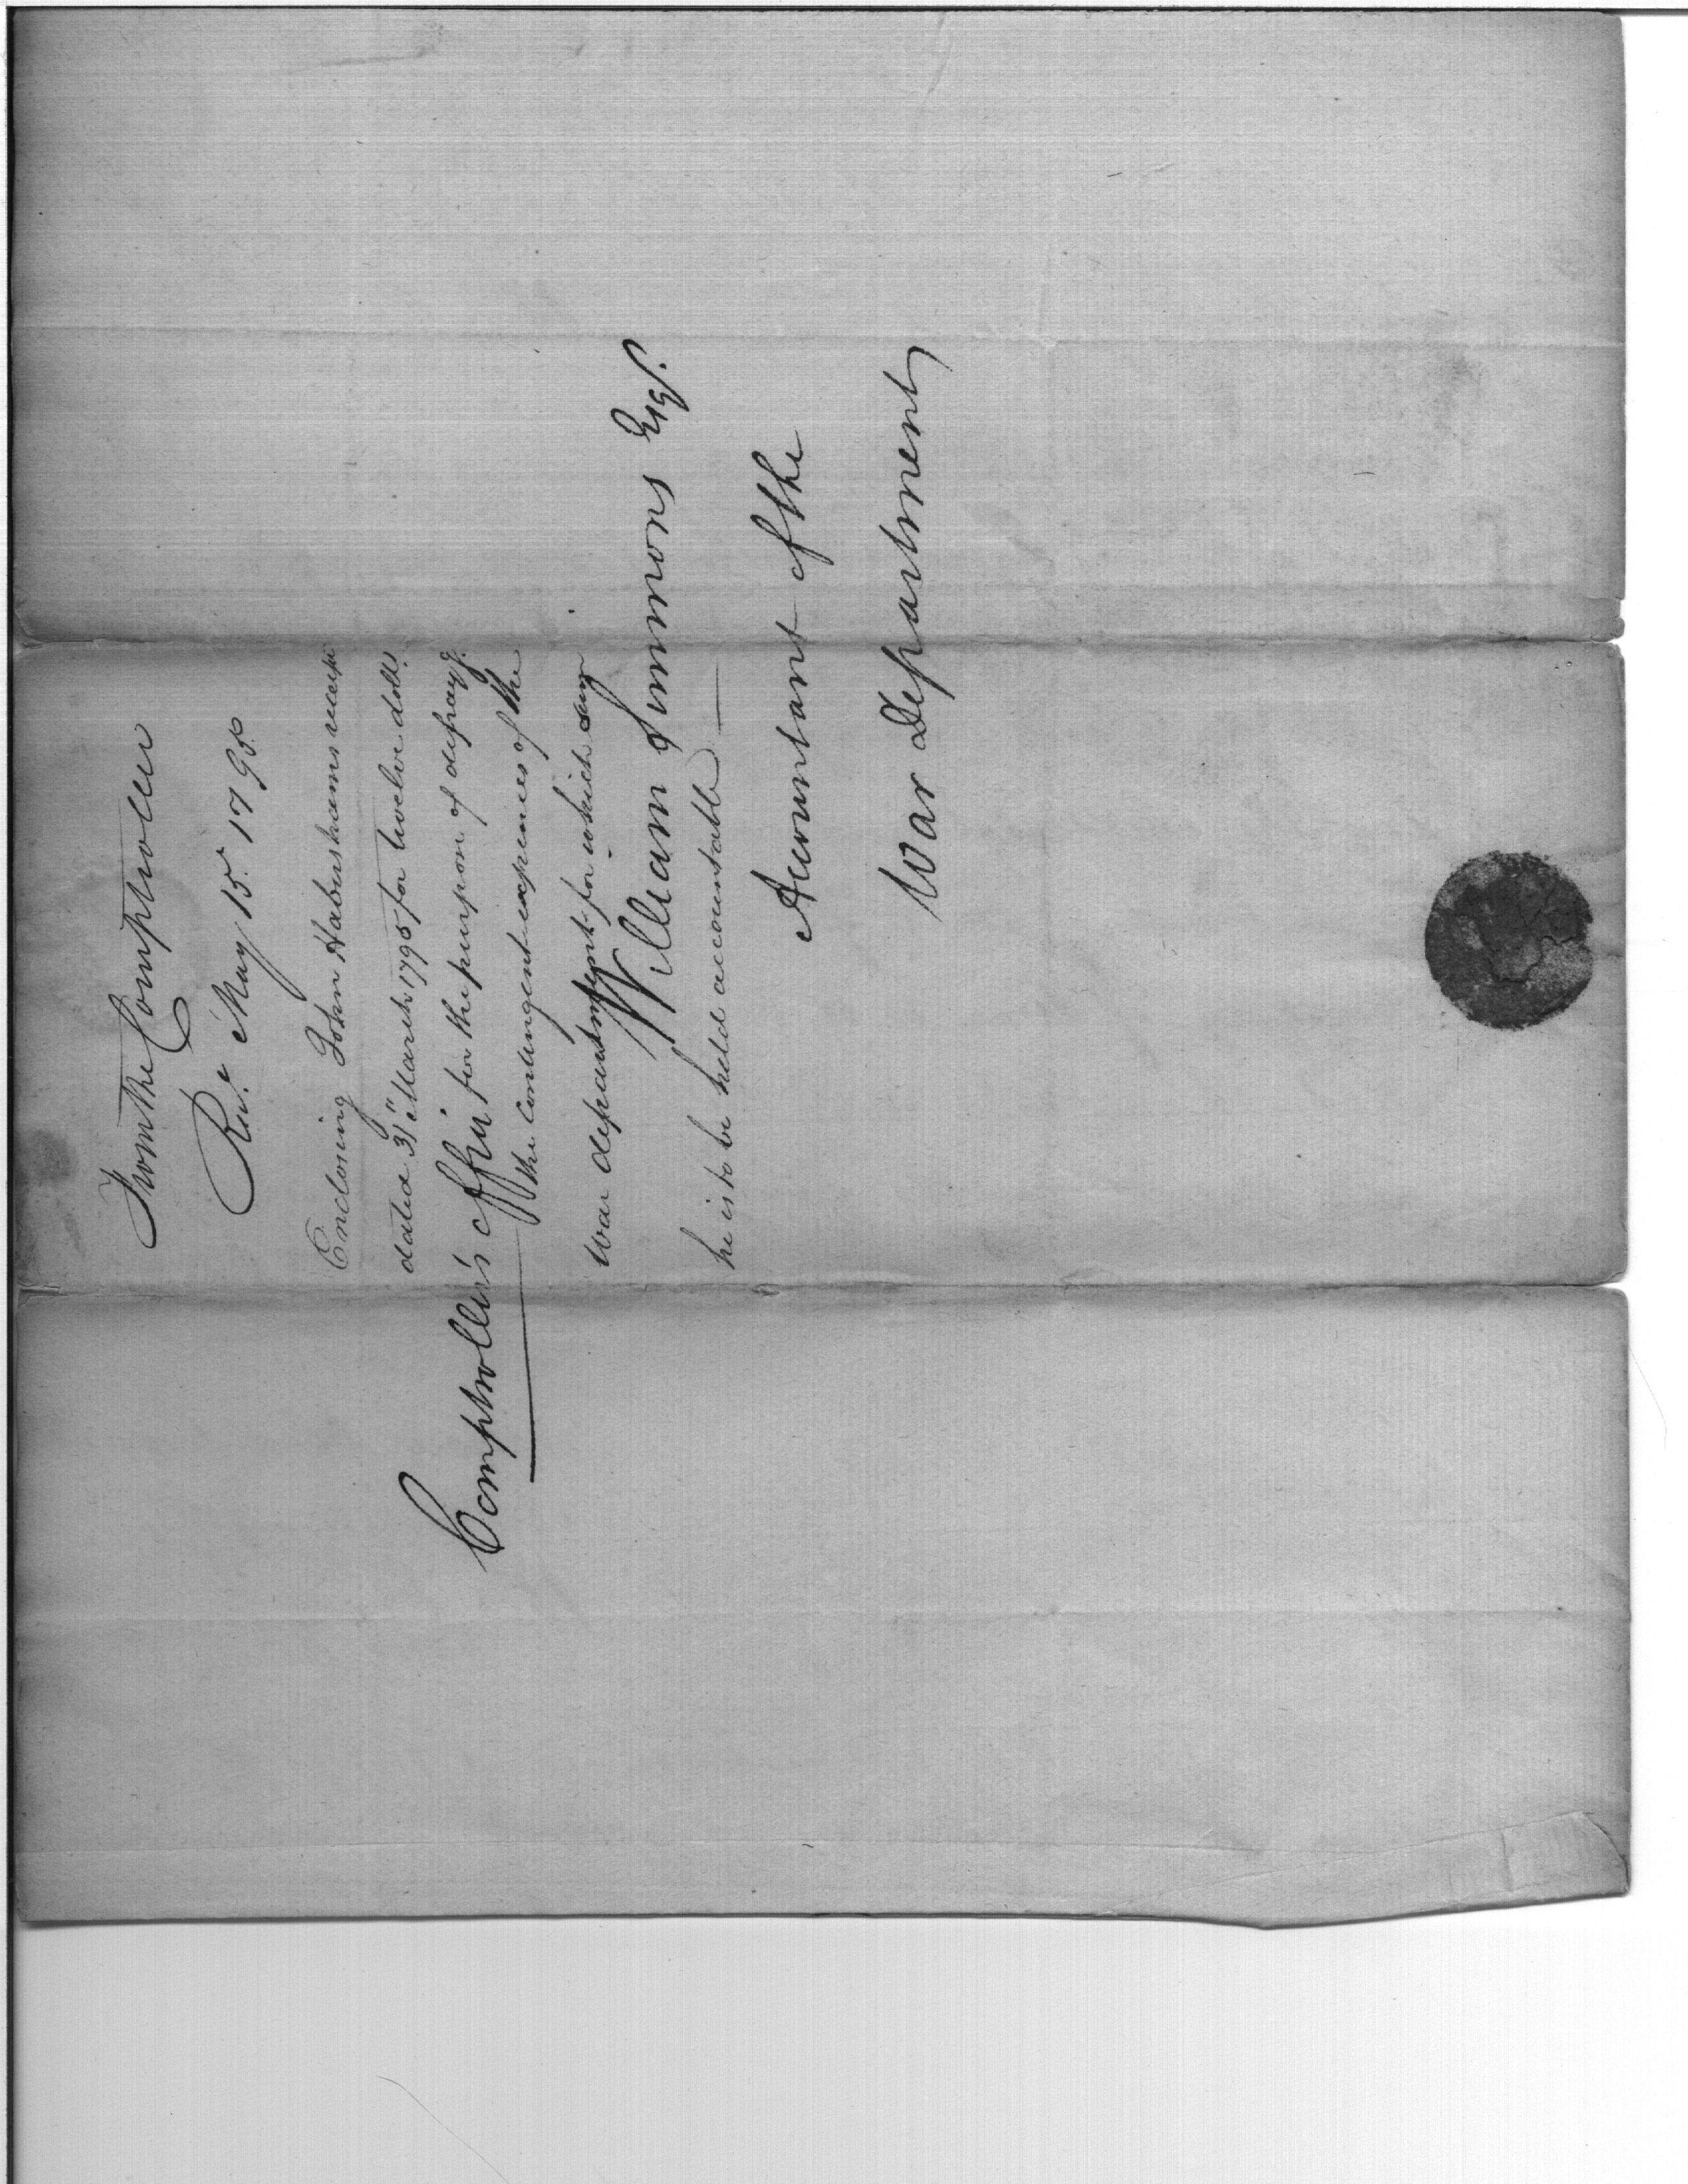 From the Comptroller
Recd. May 15. 1798
Enclosing John Habershams receipt
dated 31st March 1795 for twelve dolls.
for the purpose of defrayg.
the contingent expences of the
War department for which sum
he is to be held accountable
Comptroller's Office
William Simmons Esqr.
Accountant of the
War Department